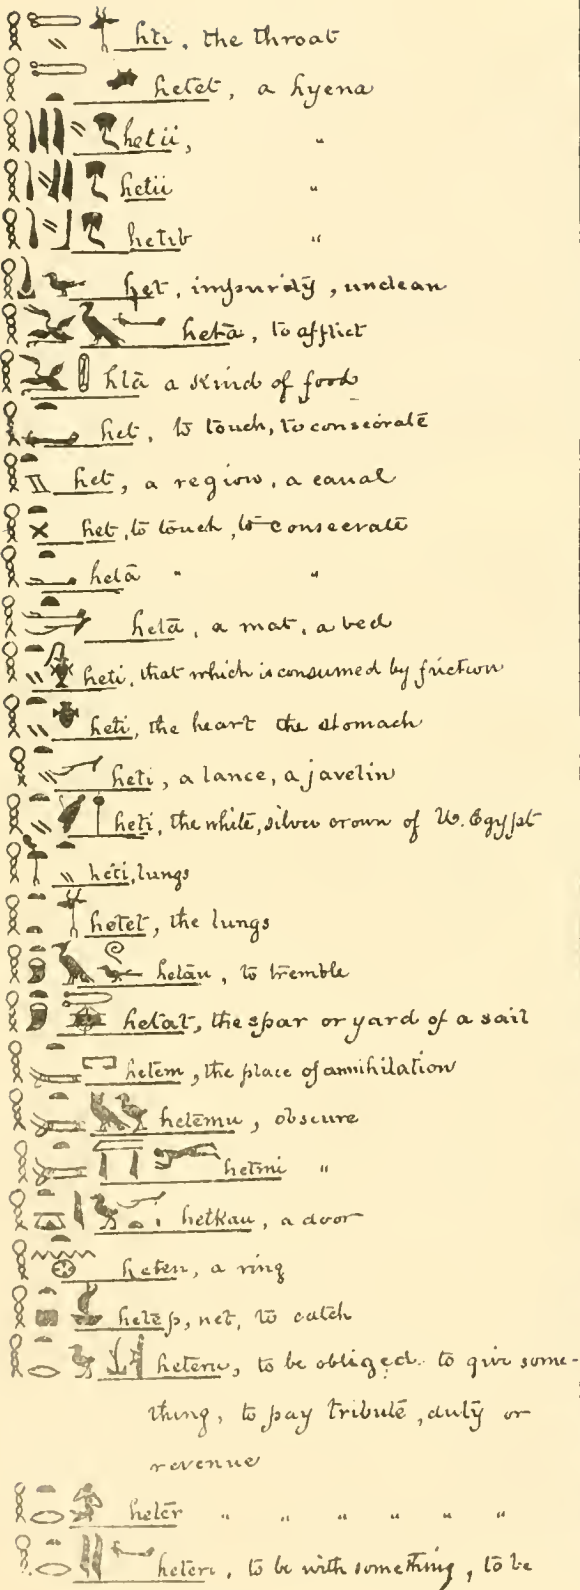 hti, the throat
hetet, a hyena
hetii, "
hetii "
hetib "
het, impurity, unclean
heta, to afflict
htā a kind of food
het, to touch, to consecrate
het, a region, a canal
het, to touch, to consecrate
hetā " "
hetā, a mat, a bed
heti, that which is consumed by friction
heti, the heart the stomach
heti, a lance, a javelin
heti, the white, silver crown of U. Egypt
heti, lungs
hetet, the lungs
hetau, to tremble
hetat, the spar or yard of a sail
hetem, the place of annihilation
hetemu, obscure
hetmi "
hetkau, a door
heten, a ring
hetep, net, to catch
heteru, to be obliged to give some-
thing, to pay tribute, duty or
revenue
heter " " " " " "
heteri, to be with something, to be